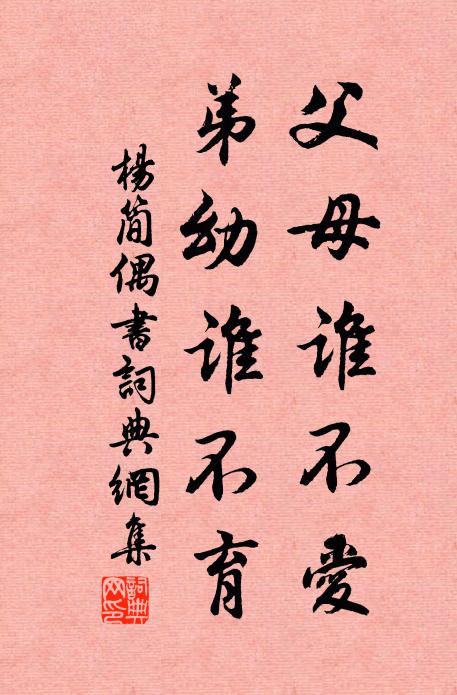 父母誰不愛
弟幼誰不育
楊簡偶書詞典網集
詞典網印